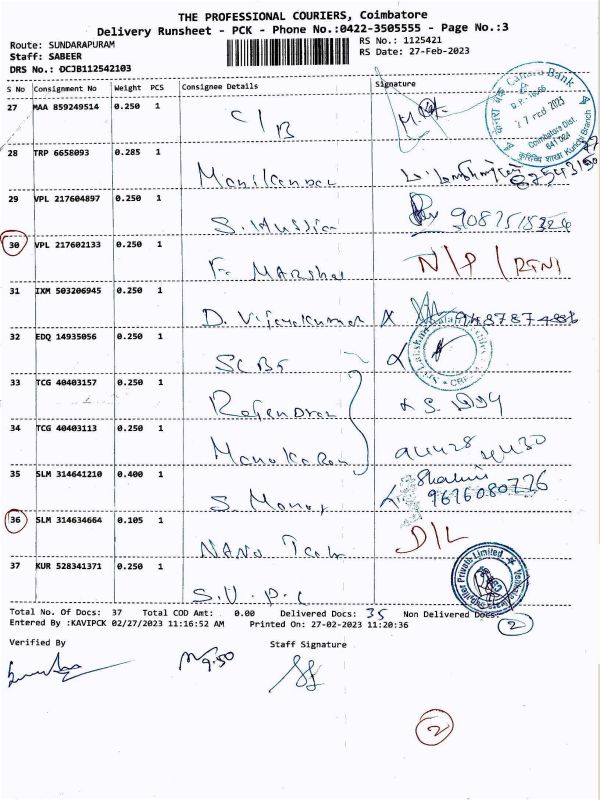 THE PROFESSIONAL COURIERS, Coimbatore
Delivery Runsheet - PCK - Phone No.:0422-3505555 - Page No.:3
Route: SUNDARAPURAM
RS No.: 1125421
Staff: SABEER
RS Date: 27-Feb-2023
DRS No.: OCJB112542103
S No Consignment No Weight PCS Consignee Details Signature
27 MAA 859249514 0.250 1 C/B
Canara Bank
Coimbatore Dist.
641 024
28 TRP 6658093 0.285 1 Manikandan
29 VPL 217604897 0.250 1 S. Hussian
30 VPL 217602133 0.250 1 F. Marshal N/P / RTN
31 IXM 503206945 0.250 1 D. Vijayakumar
32 EDQ 14935056 0.250 1
33 TCG 40403157 0.250 1 Rajendran
34 TCG 40403113 0.250 1 Manokaran
35 SLM 314641210 0.400 1 S. Manoj Shalini 9676080776
36 SLM 314634664 0.105 1 NANO Tech D/L
37 KUR 528341371 0.250 1 S.V.P.C
Private Limited
Total No. Of Docs: 37 Total COD Amt: 0.00 Delivered Docs: 35 Non Delivered Docs: 2
Entered By :KAVIPCK 02/27/2023 11:16:52 AM Printed On: 27-02-2023 11:20:36
Verified By Staff Signature
9.50
2